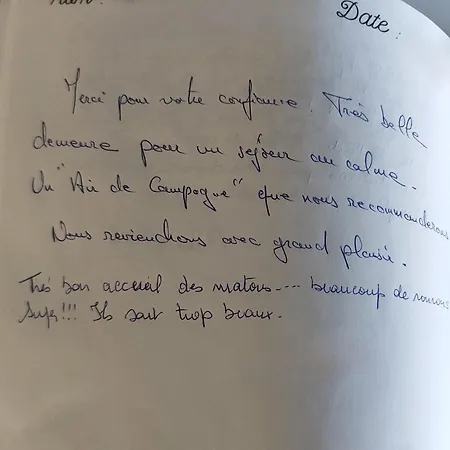 Date :
Merci pour votre confiance. Très belle
demeure pour un séjour au calme.
Un "Air de Campagne" que nous recommanderons
Nous reviendrons avec grand plaisir.
Très bon accueil des matous.... beaucoup de ronrons
!!! Ils sont trop beaux.